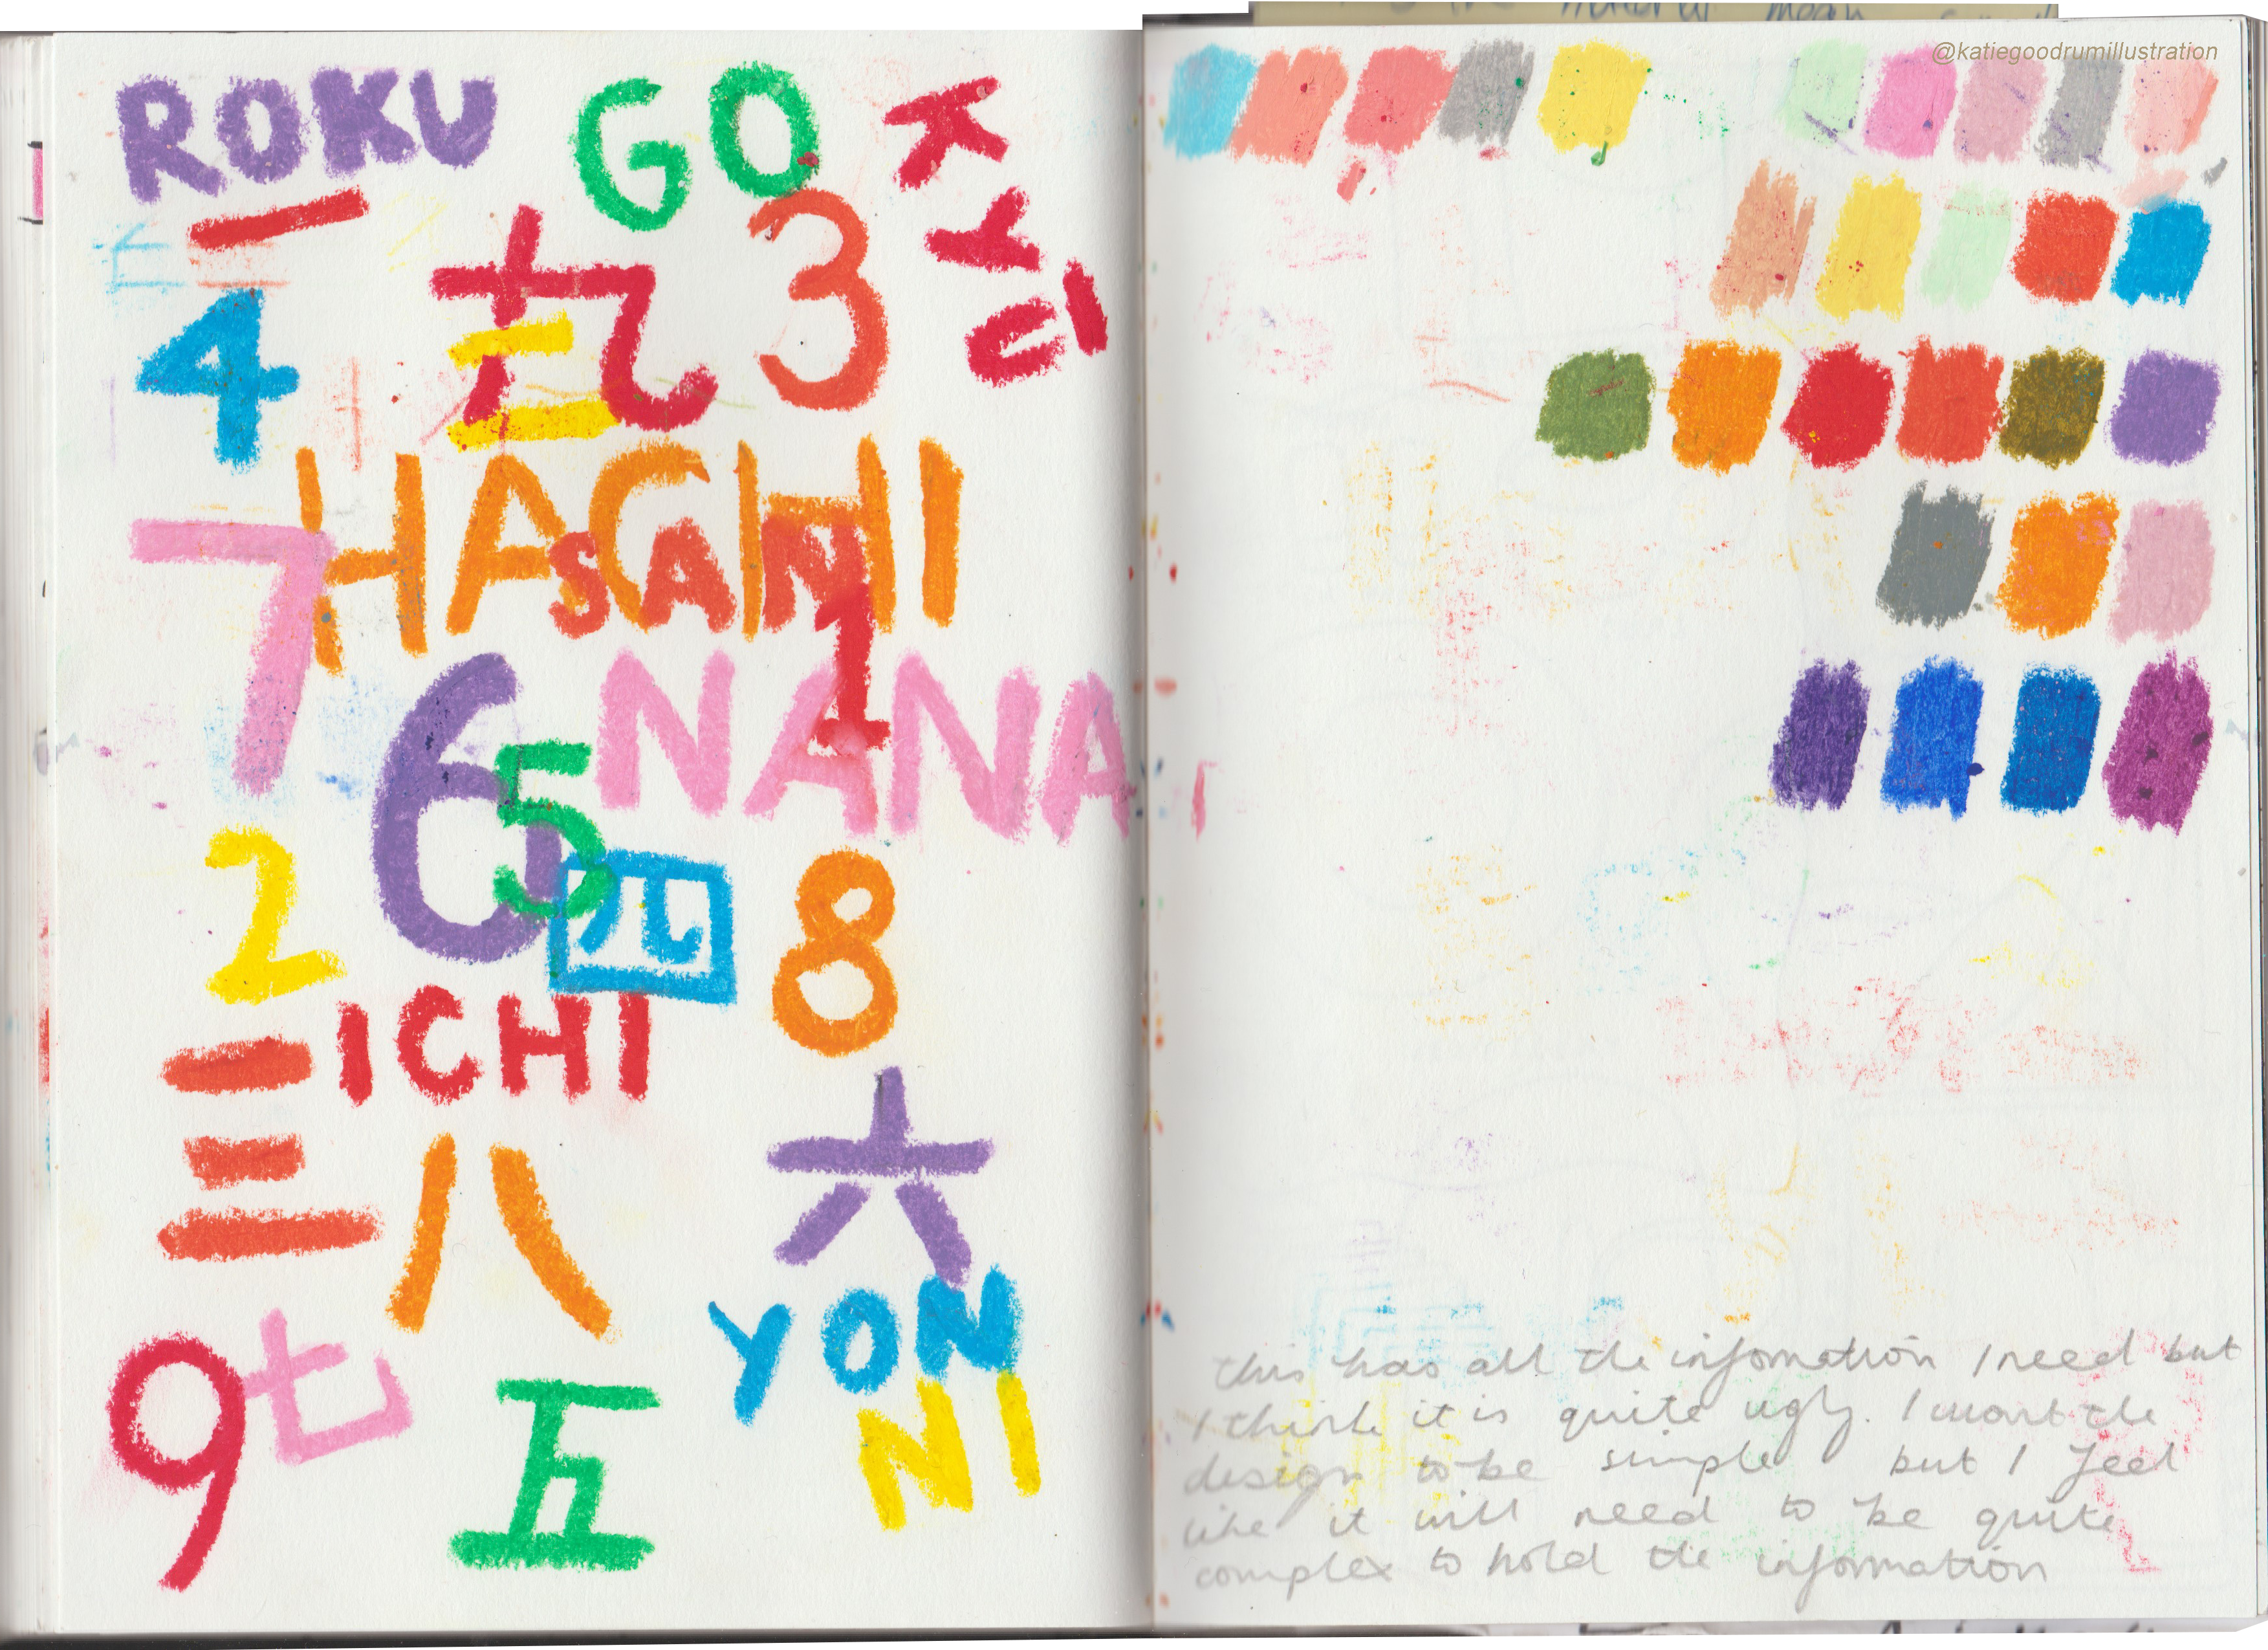 ROKU
GO
KYU
一
九
3
4
二
HACHI
SAN
7
1
NANA
6
5
2
四
8
ICHI
三
八
六
YON
NI
9
七
五
@katiegoodrumillustration
this has all the infomation I need but
I think it is quite ugly. I want the
design to be simple but I feel
like it will need to be quite
complex to hold the information